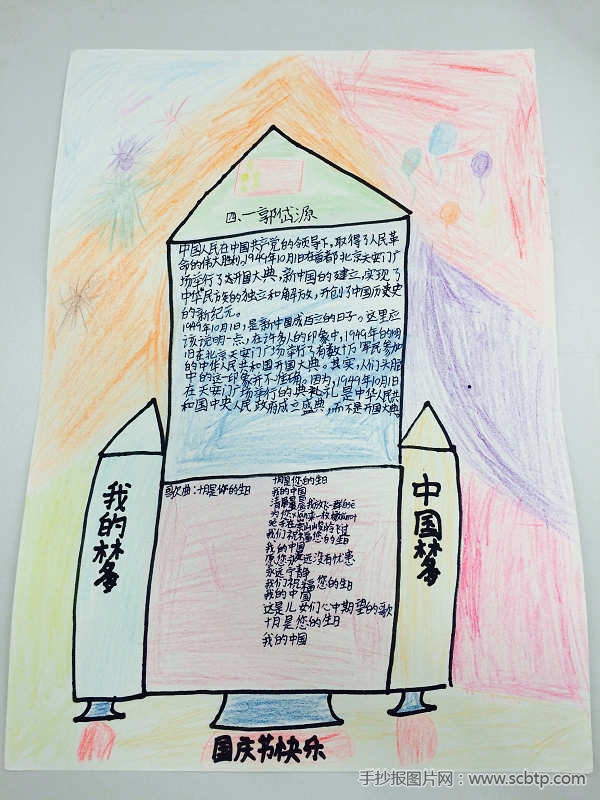 四、一郭岱源
中国人民在中国共产党的领导下,取得了人民革
命的伟大胜利。1949年10月1日在首都北京天安门广
场举行了开国大典,新中国的建立,实现了
中华民族的独立和解放,开创了中国历史
的新纪元。
1949年10月1日,是新中国成立的日子。这里应
该说明一点,在许多人的印象中,1949年的
日在北京天安门广场举行了有数十万军民参加
的中华人民共和国开国大典。其实,人们头脑
中的这一印象并不准确。因为,1949年10月1日
在天安门广场举行的典礼是中华人民共
和国中央人民政府成立盛典,而不是开国大典。
我的梦
中国梦
歌曲:十月是您的生日
十月是您的生日
我的中国
清晨我放飞一群白
为您衔来一枚
在崇山峻岭飞过
我们祝福您的生日
我的中国
愿您永远没有忧患
永远宁静
我们祝福您的生日
我的中国
这是儿女们心中期望的歌
十月是您的生日
我的中国
国庆节快乐
手抄报图片网:www.scbtp.com